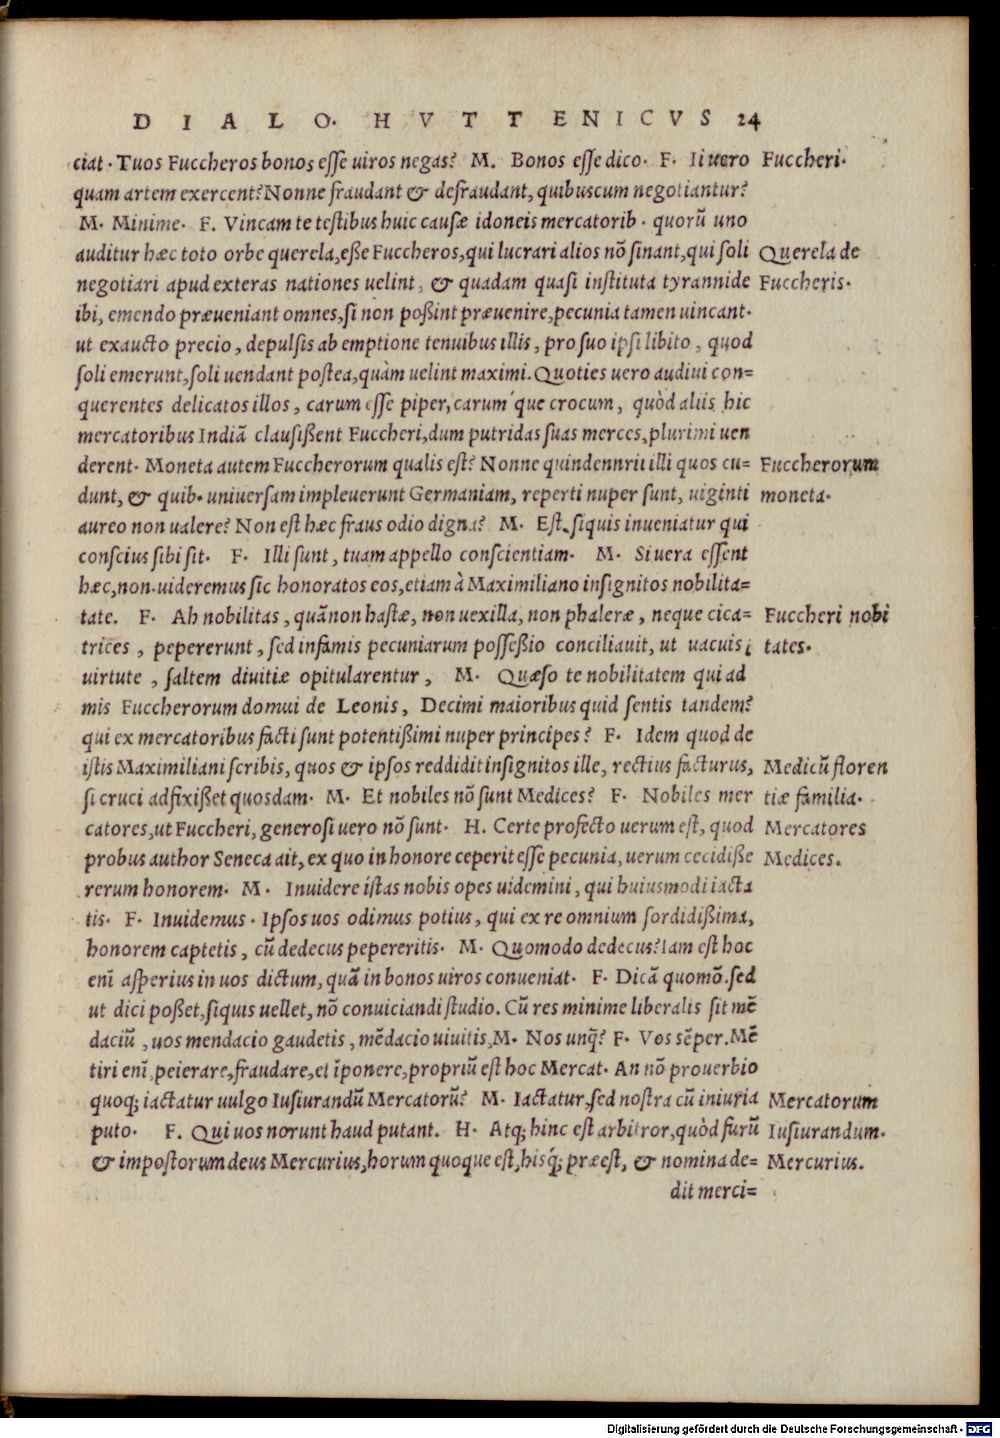 DIALO. HVTTENICVS 24
ciat. Tuos Fuccheros bonos esse uiros negas? M. Bonos esse dico. F. Ii uero Fuccheri.
quam artem exercent? Nonne fraudant & defraudant, quibuscum negotiantur?
M. Minime. F. Vincam te testibus huic causæ idoneis mercatorib. quorũ uno
auditur hæc toto orbe querela, eße Fuccheros, qui lucrari alios nõ sinant, qui soli Querela de
negotiari apud exteras nationes uelint, & quadam quasi instituta tyrannide Fuccheris.
ibi, emendo præueniant omnes, si non poßint præuenire, pecunia tamen uincant.
ut exaucto precio, depulsis ab emptione tenuibus illis, pro suo ipsi libito, quod
soli emerunt, soli uendant postea, quàm uelint maximi. Quoties uero audiui con=
querentes delicatos illos, carum esse piper, carum´que crocum, quòd aliis hic
mercatoribus Indiã clausißent Fuccheri, dum putridas suas merces, plurimi uen
derent. Moneta autem Fuccherorum qualis est? Nonne quindennrii illi quos cu= Fuccherorum
dunt, & quib. uniuersam impleuerunt Germaniam, reperti nuper sunt, uiginti moneta.
aureo non ualere? Non est hæc fraus odio digna? M. Est, siquis inueniatur qui
conscius sibi sit. F. Illi sunt, tuam appello conscientiam. M. Si uera essent
hæc, non uideremus sic honoratos eos, etiam à Maximiliano insignitos nobilita=
tate. F. Ah nobilitas, quã non hastæ, non uexilla, non phaleræ, neque cica= Fuccheri nobi
trices, pepererunt, sed infamis pecuniarum posseßio conciliauit, ut uacuis¡ tates.
uirtute, saltem diuitiæ opitularentur, M. Quæso te nobilitatem qui ad
mis Fuccherorum domui de Leonis, Decimi maioribus quid sentis tandem?
qui ex mercatoribus facti sunt potentißimi nuper principes? F. Idem quod de
istis Maximiliani scribis, quos & ipsos reddidit insignitos ille, rectius facturus, Medicũ floren
si cruci adfixißet quosdam. M. Et nobiles nõ sunt Medices? F. Nobiles mer tiæ familia.
catores, ut Fuccheri, generosi uero nõ sunt. H. Certe profecto uerum est, quod Mercatores
probus author Seneca ait, ex quo in honore ceperit esse pecunia, uerum cecidiße Medices.
rerum honorem. M. Inuidere istas nobis opes uidemini, qui huiusmodi iacta
tis. F. Inuidemus. Ipsos uos odimus potius, qui ex re omnium sordidißima,
honorem captetis, cũ dedecus pepereritis. M. Quomodo dedecus? Iam est hoc
enĩ asperius in uos dictum, quã in bonos uiros conueniat. F. Dicã quomõ. sed
ut dici poßet, siquis uellet, nõ conuiciandi studio. Cũ res minime liberalis sit mẽ
daciũ, uos mendacio gaudetis, mẽdacio uiuitis, M. Nos unq̃? F. Vos sẽper. Mẽ
tiri enĩ, peierare, fraudare, et ĩponere, propriũ est hoc Mercat. An nõ prouerbio
quoq; iactatur uulgo Iusiurandũ Mercatorũ? M. Iactatur, sed nostra cũ iniuria Mercatorum
puto. F. Qui uos norunt haud putant. H. Atq; hinc est arbitror, quòd furũ Iusiurandum.
& impostorum deus Mercurius, horum quoque est, hisq́; præest, & nomina de= Mercurius.
dit merci=
Digitalisierung gefördert durch die Deutsche Forschungsgemeinschaft - DFG